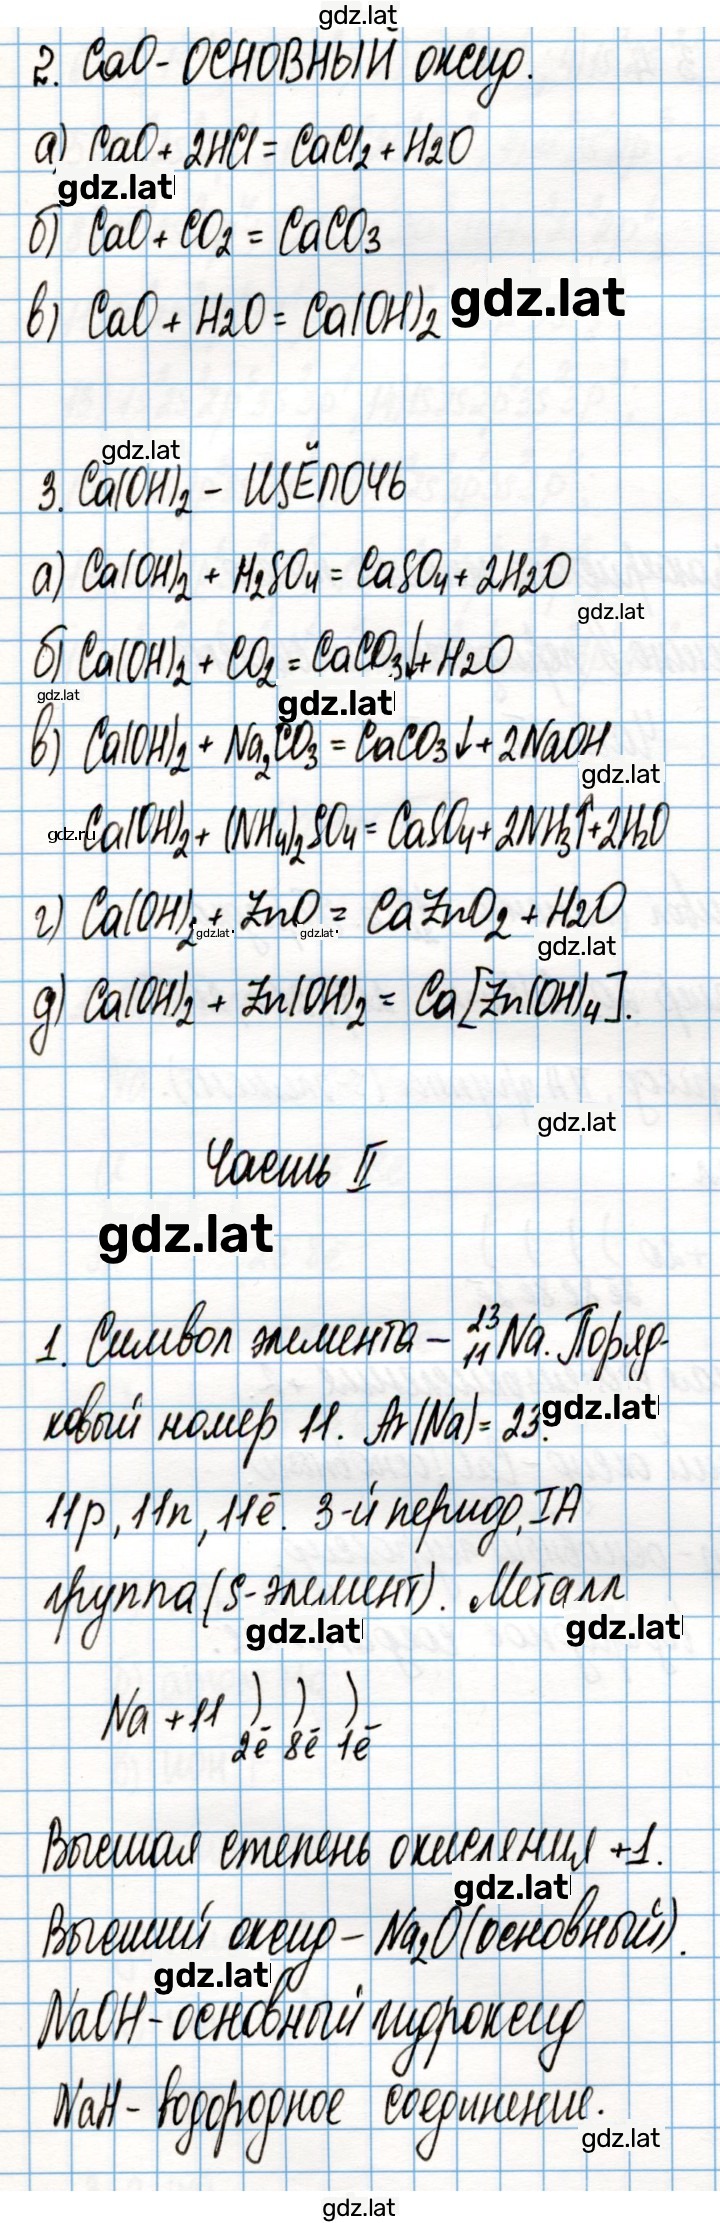 gdz.lat
2. CaO - ОСНОВНЫЙ оксид.
а) CaO + 2HCl = CaCl2 + H2O
gdz.lat
б) CaO + CO2 = CaCO3
в) CaO + H2O = Ca(OH)2 gdz.lat
gdz.lat
3. Ca(OH)2 - ЩЁЛОЧЬ
а) Ca(OH)2 + H2SO4 = CaSO4 + 2H2O
gdz.lat
б) Ca(OH)2 + CO2 = CaCO3↓ + H2O
gdz.lat gdz.lat
в) Ca(OH)2 + Na2CO3 = CaCO3↓ + 2NaOH
gdz.lat
gdz.ru Ca(OH)2 + (NH4)2SO4 = CaSO4 + 2NH3↑ + 2H2O
г) Ca(OH)2 + ZnO = CaZnO2 + H2O
gdz.lat gdz.lat gdz.lat
д) Ca(OH)2 + Zn(OH)2 = Ca[Zn(OH)4].
gdz.lat
Часть II
gdz.lat
1. Символ элемента - 23 11 Na. Поряд-
ковый номер 11. Ar(Na) = 23. gdz.lat
11p, 11n, 11ē. 3-й период, IA
группа (s-элемент). Металл
gdz.lat gdz.lat
Na +11 ) ) )
2ē 8ē 1ē
Высшая степень окисления +1.
gdz.lat
Высший оксид - Na2O (основный).
gdz.lat
NaOH - основный гидроксид
NaH - водородное соединение.
gdz.lat
gdz.lat